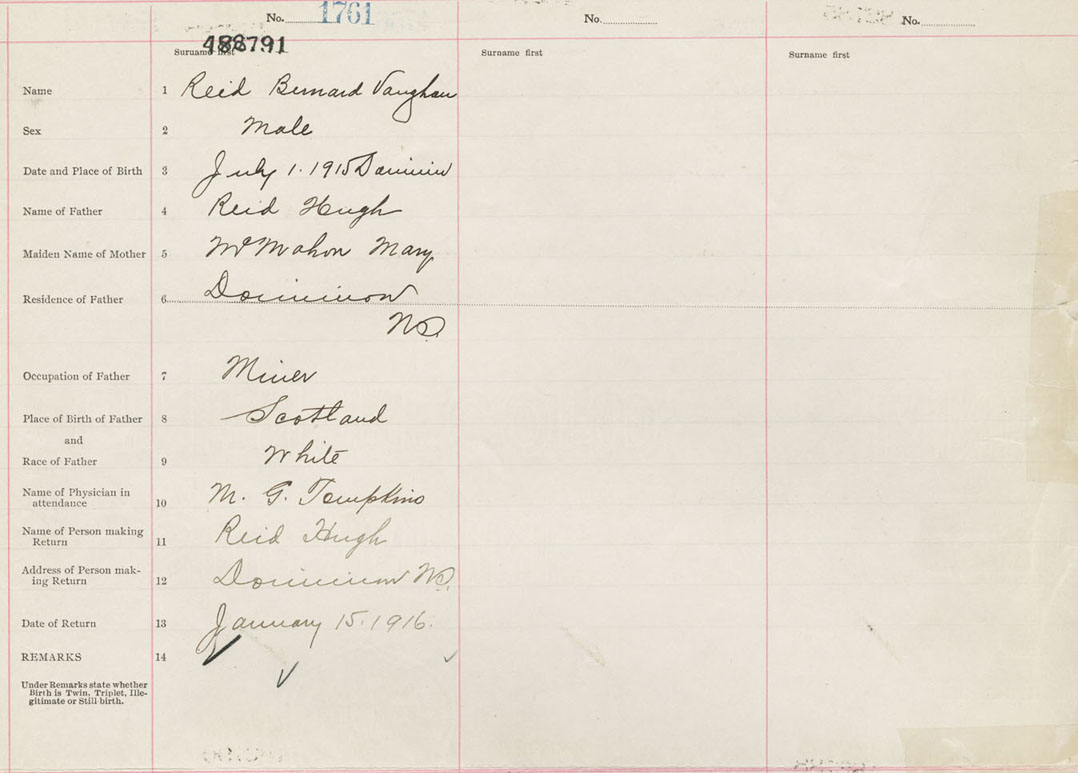 No. 1761 No. No.
488791
Surname first Surname first Surname first
Name 1 Reid Bernard Vaughan
Sex 2 Male
Date and Place of Birth 3 July 1. 1915 Dominion
Name of Father 4 Reid Hugh
Maiden Name of Mother 5 McMahon Mary
Residence of Father 6 Dominion
NS.
Occupation of Father 7 Miner
Place of Birth of Father 8 Scotland
and
Race of Father 9 White
Name of Physician in
attendance 10 M. G. Tompkins
Name of Person making
Return 11 Reid Hugh
Address of Person mak-
ing Return 12 Dominion NS.
Date of Return 13 January 15. 1916.
REMARKS 14
Under Remarks state whether
Birth is Twin, Triplet, Ille-
gitimate or Still-birth.